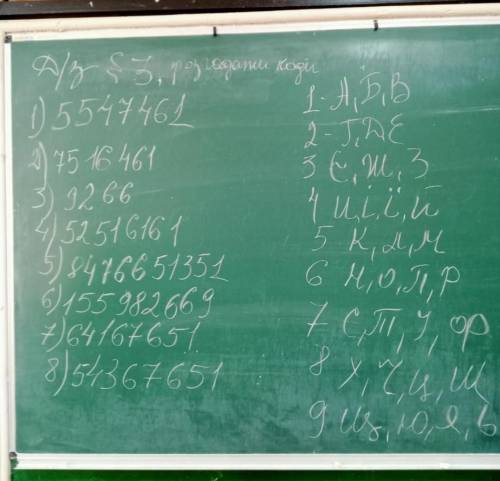 Д/з § 3, розгадати коди
1) 5547461
2) 7516461
3) 9266
4) 52516161
5) 8476651351
6) 155982669
7) 64167651
8) 54367651
1 - А, Б, В
2 - Г, Д, Е
3 Є, Ж, З
4 И, і, ї, й
5 К, Л, М
6 Н, О, П, Р
7 С, Т, У, Ф
8 Х, Ч, Ц, Щ
9 Щ, Ю, Я, Ь